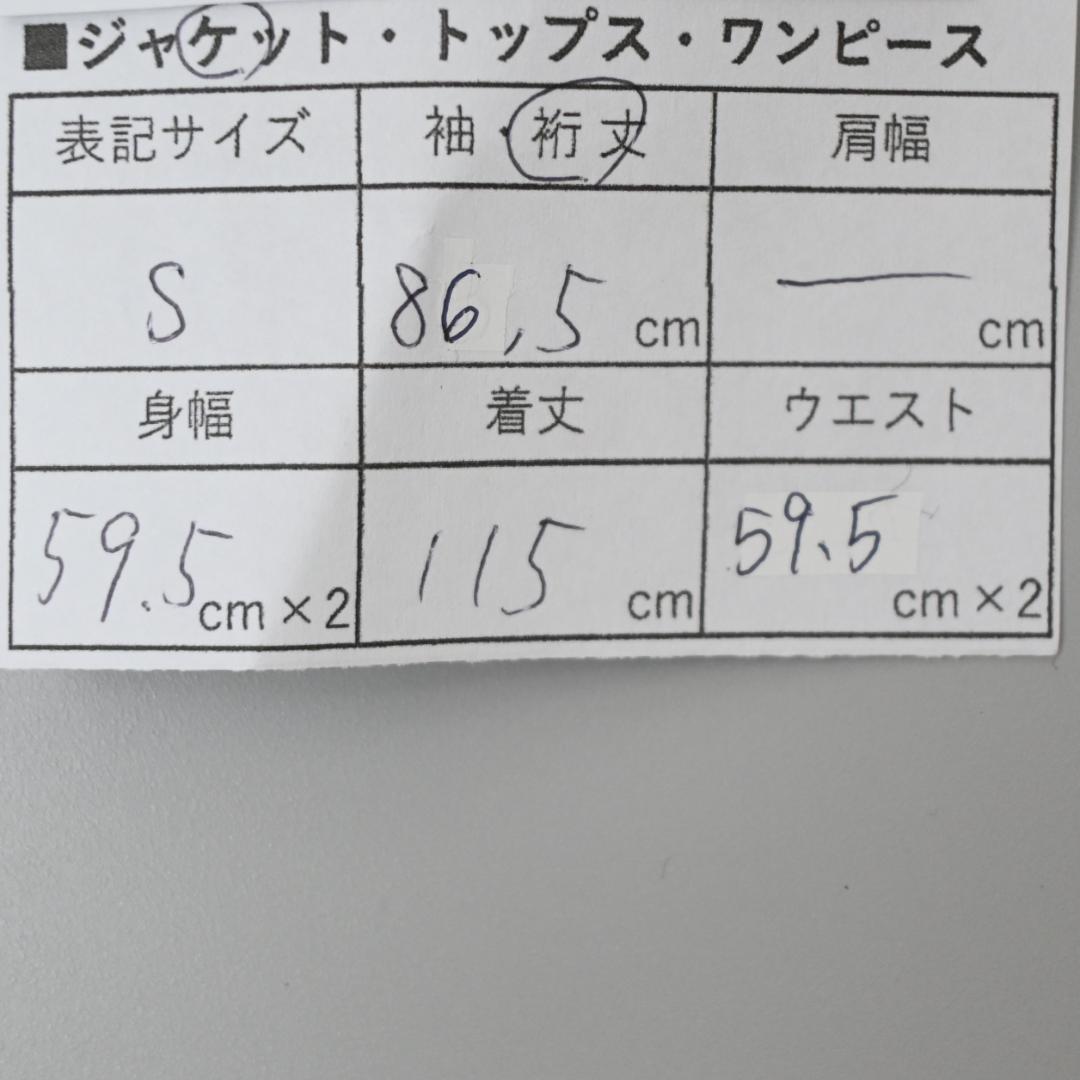 ■ジャケット・トップス・ワンピース
表記サイズ 袖・裄丈 肩幅
S 86.5 cm — cm
身幅 着丈 ウエスト
59.5 cm×2 115 cm 59.5 cm×2